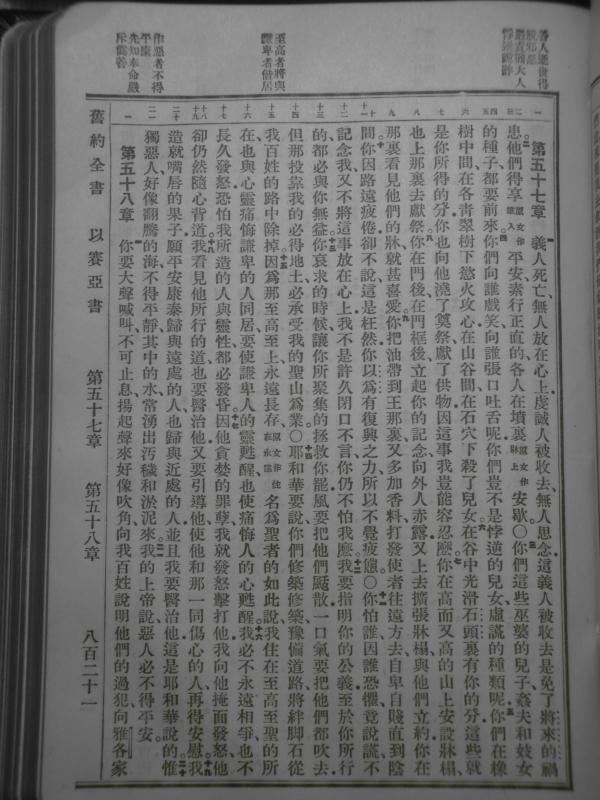 善人逝世得
脫邪惡
嚴責猶大人
悖逆詭詐
至高者將與
謙卑者偕居
作惡者不得
平康
先知奉命嚴
斥僞善
第五十七章 義人死亡、無人放在心上、虔誠人被收去、無人思念、這義人被收去是免了將來的禍
患、他們得享原文作進入平安、素行正直的、各人在墳裏原文作牀上安歇○你們這些巫婆的兒子、姦夫和妓女
的種子、都要前來、你們向誰戲笑、向誰張口吐舌呢、你們豈不是悖逆的兒女、虛謊的種類呢、你們在橡
樹中間、在各青翠樹下慾火攻心、在山谷間在石穴下殺了兒女、在谷中光滑石頭裏有你的分、這些就
是你所得的分、你也向他澆了奠祭、獻了供物、因這事我豈能容忍麼、你在高而又高的山上安設牀榻、
也上那裏去獻祭、你在門後在門框後、立起你的記念、向外人赤露、又上去擴張牀榻、與他們立約、你在
那裏看見他們的牀、就甚喜愛、你把油帶到王那裏、又多加香料、打發使者往遠方去、自卑自賤直到陰
間、你因路遠疲倦、卻不說這是枉然、你以爲有復興之力、所以不覺疲憊○你怕誰因誰恐懼、竟說謊、不
記念我、又不將這事放在心上、我不是許久閉口不言、你仍不怕我麼、我要指明你的公義、至於你所行
的都必與你無益、你哀求的時候、讓你所聚集的拯救你罷、風要把他們颳散、一口氣要把他們都吹去、
但那投靠我的必得地土、必承受我的聖山爲業○耶和華要說、你們修築修築、豫備道路、將絆腳石從
我百姓的路中除掉、因爲那至高至上、永遠長存原文作住在永遠名爲聖者的如此說、我住在至高至聖的所
在、也與心靈痛悔謙卑的人同居、要使謙卑人的靈甦醒、也使痛悔人的心甦醒、我必不永遠相爭、也不
長久發怒、恐怕我所造的人與靈性都必發昏、因他貪婪的罪孽、我就發怒擊打他、我向他掩面發怒、他
卻仍然隨心背道、我看見他所行的道、也要醫治他、又要引導他、使他和那一同傷心的人、再得安慰、我
造就嘴唇的果子、願平安康泰歸與遠處的人、也歸與近處的人、並且我要醫治他、這是耶和華說的、惟
獨惡人、好像翻騰的海、不得平靜、其中的水、常湧出污穢和淤泥來、我的上帝說、惡人必不得平安。
第五十八章 你要大聲喊叫、不可止息、揚起聲來、好像吹角、向我百姓說明他們的過犯、向雅各家
舊約全書 以賽亞書 第五十七章 第五十八章 八百二十一